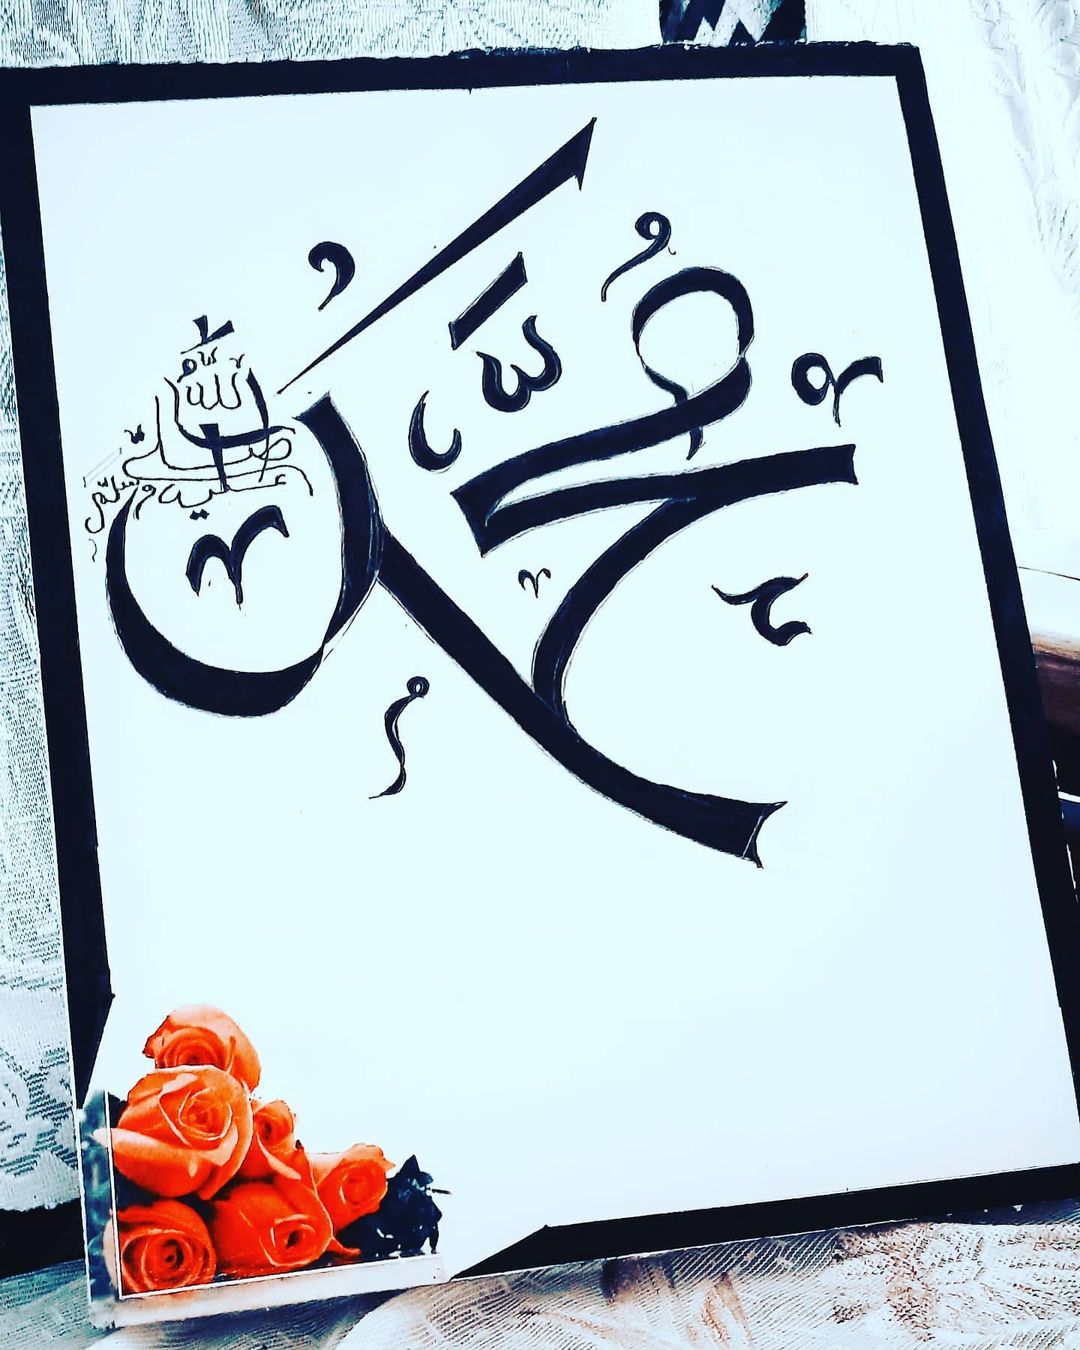 مُحَمَّد
صلّى اللّٰه عليه وسلّم